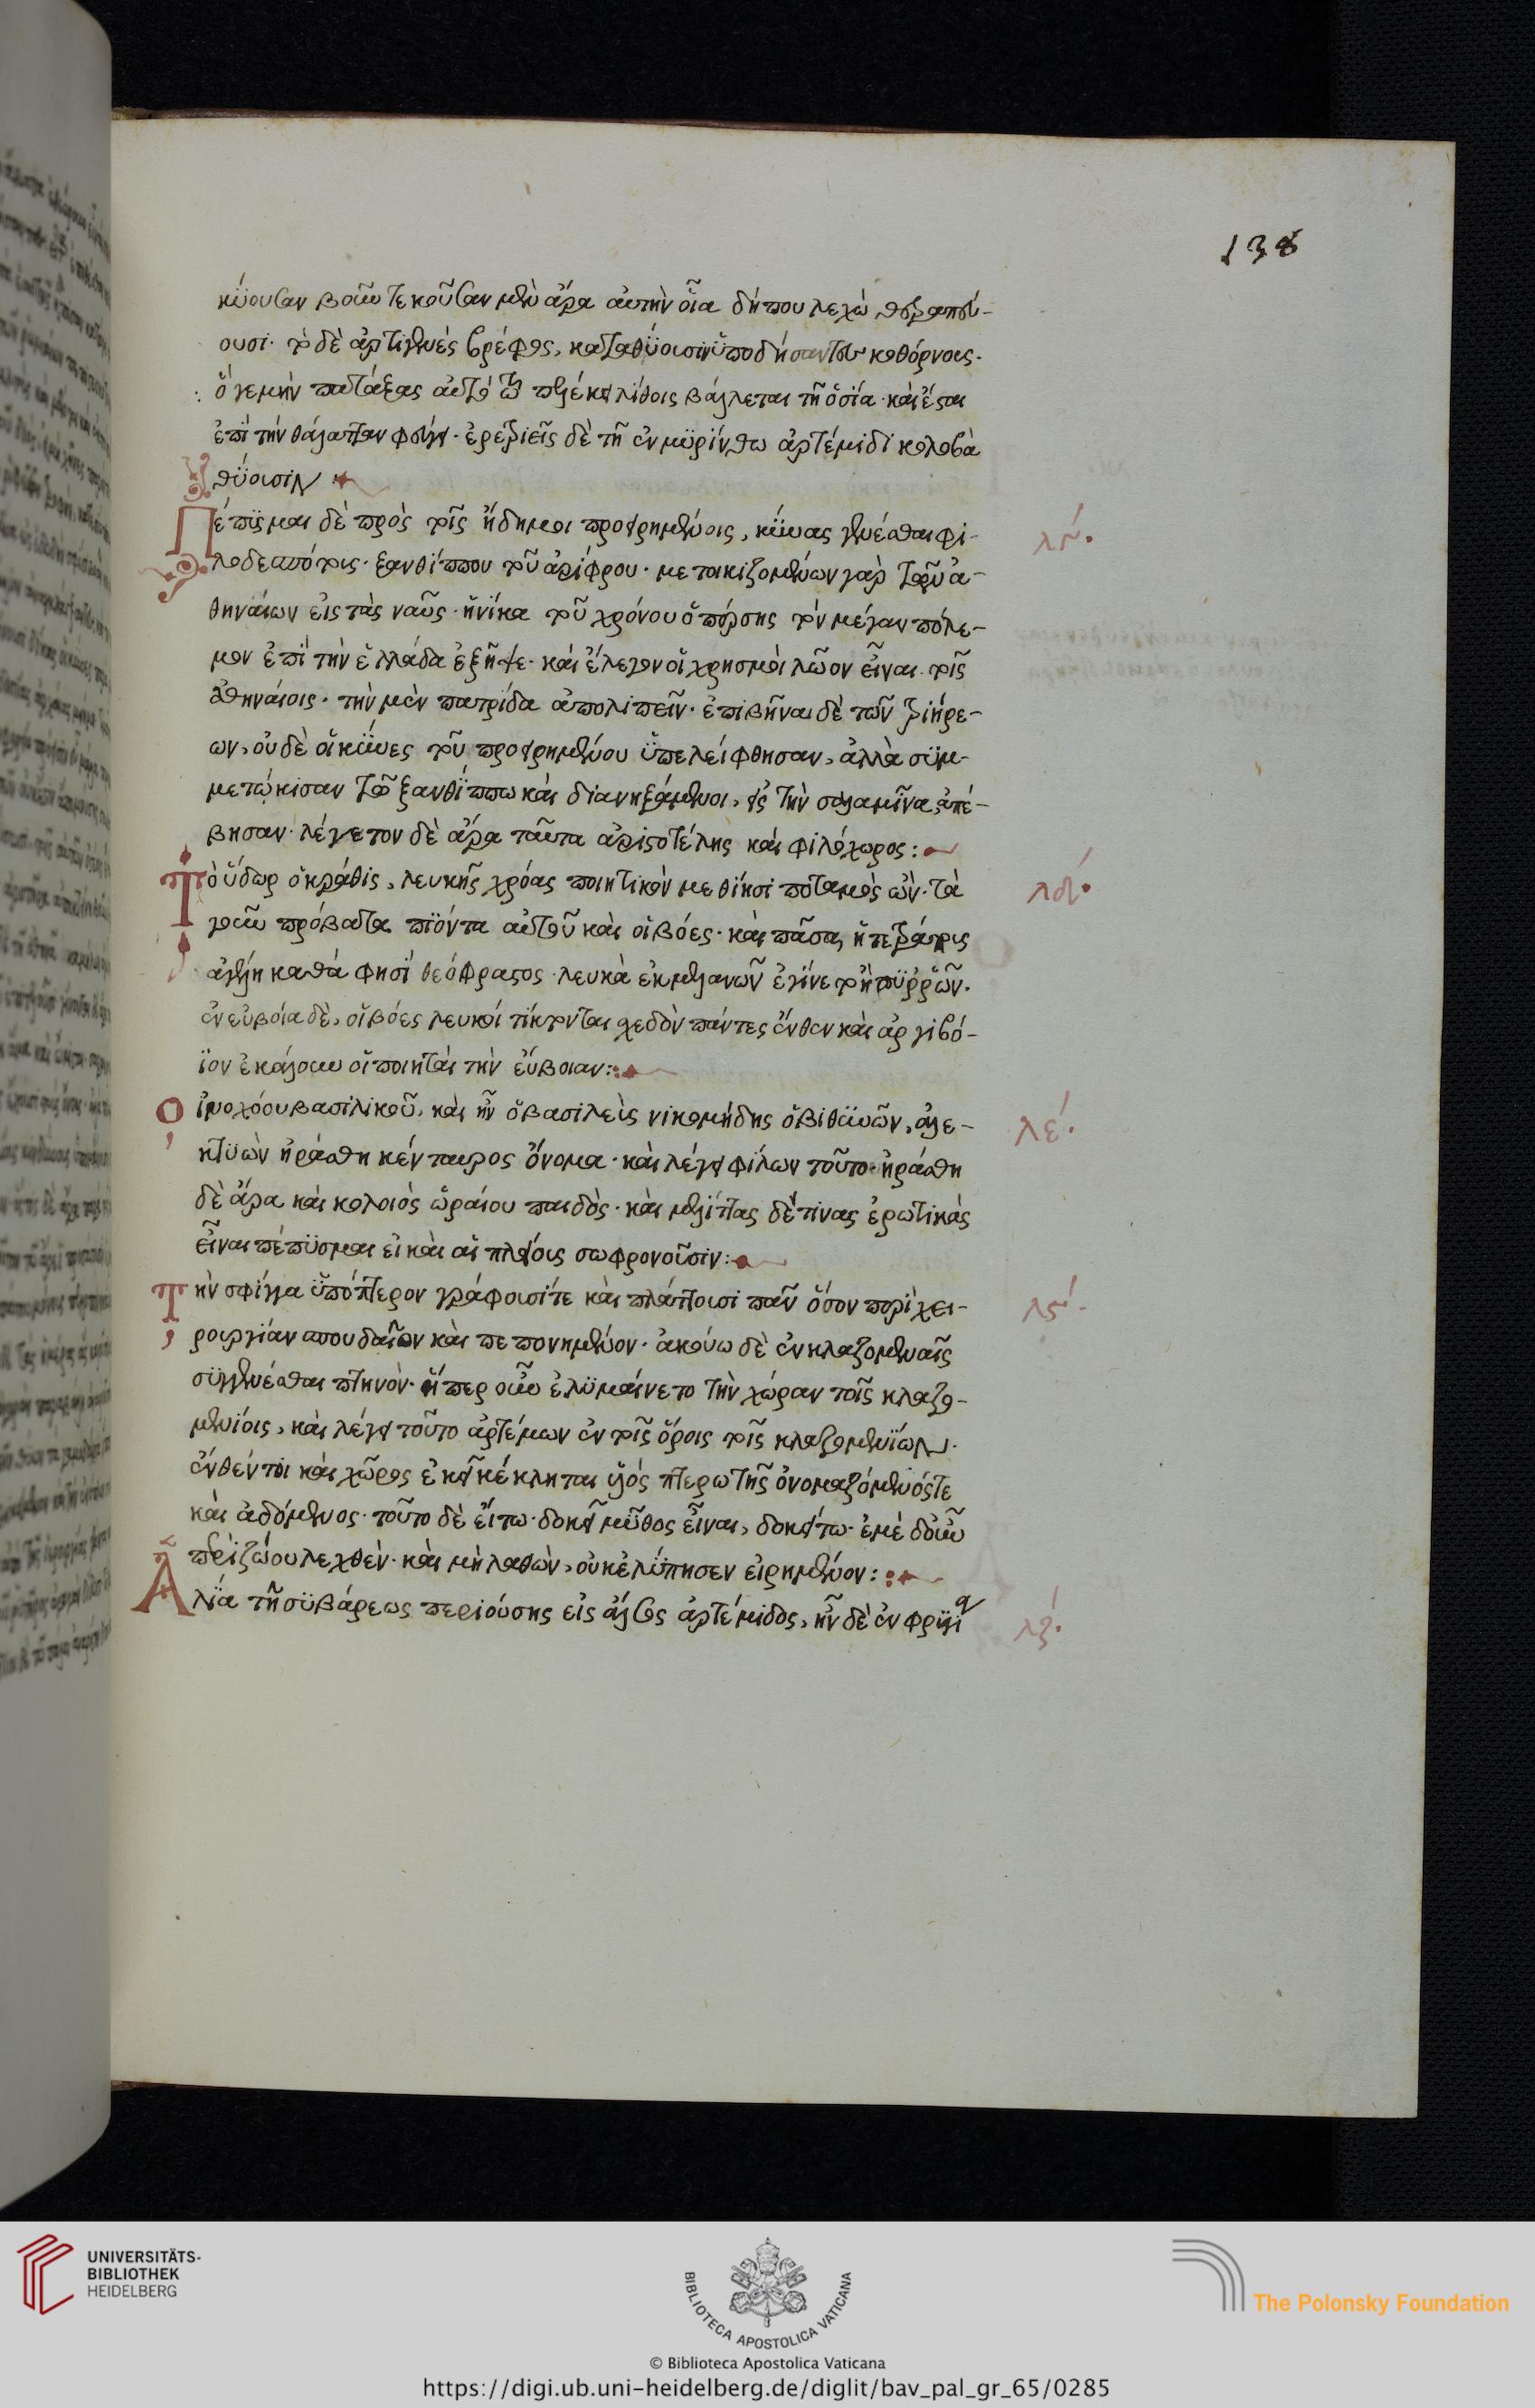 138
κύουσαν βοῦν τεκοῦσαν μὲν ἄρα αὐτὴν οἷα δήπου λεχὼ θεραπεύ-
ουσι· τὸ δὲ ἀρτιγενὲς βρέφος, καταθύουσιν ὑποδήσαντες κοθόρνοις·
ὅ γε μὴν πατάξας αὐτὸ τῷ πελέκει λίθοις βάλλεται τῇ ὁσίᾳ· καὶ ἔστε
ἐπὶ τὴν θάλατταν φεύγει· ἐρετριεῖς δὲ τῇ ἐν μυρίνθω ἀρτέμιδι κολοβὰ
θύουσιν
Πέπυσμαι δὲ πρὸς τοῖς ἤδη μοι προειρημένοις, κύνας γενέσθαι φι-
λοδεσπότους· ξανθίππου τοῦ ἀρίφρου· μετοικιζομένων γὰρ τῶν ἀ-
θηναίων εἰς τὰς ναῦς· ἡνίκα τοῦ χρόνου ὁ πέρσης τὸν μέγαν πόλε-
μον ἐπὶ τὴν ἑλλάδα ἐξῆψε· καὶ ἔλεγον οἱ χρησμοὶ λῶον εἶναι τοῖς
ἀθηναίοις· τὴν μὲν πατρίδα ἀπολιπεῖν· ἐπιβῆναι δὲ τῶν τριήρε-
ων, οὐδὲ οἱ κύνες τοῦ προειρημένου ὑπελείφθησαν, ἀλλὰ συμ-
μετῴκισαν τῷ ξανθίππω καὶ διανηξάμενοι, εἰς τὴν σαλαμῖνα ἀπέ-
βησαν· λέγετον δὲ ἄρα ταῦτα ἀριστοτέλης καὶ φιλόχορος:
Τὸ ὕδωρ ὁ κράθις, λευκῆς χρόας ποιητικὸν μεθίησι ποταμὸς ὤν· τὰ
γοῦν πρόβατα πιόντα αὐτοῦ καὶ οἱ βόες· καὶ πᾶσα ἡ τετράπους
ἀγέλη καθά φησι θεόφραστος· λευκὰ ἐκ μελανῶν ἐγίνετο ἢ πυρρῶν·
ἐν εὐβοία δὲ, οἱ βόες λευκοὶ τίκτονται σχεδὸν πάντες ἔνθεν καὶ ἀργιβό-
ϊον ἐκάλουν οἱ ποιηταὶ τὴν εὔβοιαν:
Οἰνοχόου βασιλικοῦ, καὶ ἦν ὁ βασιλεὺς νικομήδης ὁ βιθυνῶν, ἀλε-
κτρυὼν ἠράσθη κένταυρος ὄνομα· καὶ λέγει φίλων τοῦτο· ἠράσθη
δὲ ἄρα καὶ κολοιὸς ὡραίου παιδός· καὶ μελίττας δέ τινας ἐρωτικὰς
εἶναι πέπυσμαι εἰ καὶ αἱ πλείους σωφρονοῦσιν:
Τὴν σφίγγα ὑπόπτερον γράφουσί τε καὶ πλάττουσι πᾶν ὅσον περὶ χει-
ρουργίαν σπουδαῖον καὶ πεπονημένον· ἀκούω δὲ ἐν κλαζομεναῖς
σῦν γενέσθαι πτηνὸν· ἥπερ οὖν ἐλυμαίνετο τὴν χώραν τοῖς κλαζο-
μενίοις, καὶ λέγει τοῦτο ἀρτέμων ἐν τοῖς ὅροις τοῖς κλαζομενίων·
ἔνθέν τοι καὶ χῶρος ἐκεῖ κέκληται ὑὸς πτερωτῆς ὀνομαζόμενός τε
καὶ ἀδόμενος· τοῦτο δὲ εἴ τω δοκεῖ μῦθος εἶναι, δοκείτω· ἐμὲ δοὖν
περὶ ζώου λεχθὲν· καὶ μὴ λαθὼν, οὐκ ἐλύπησεν εἰρημένον:
Ἁλία τῇ συβάρεως περιούσης εἰς ἄλσος ἀρτέμιδος, ἦν δὲ ἐν φρυγία
λγ·
λδ·
λέ·
λϛ·
λζ·
UNIVERSITÄTS-
BIBLIOTHEK
HEIDELBERG
BIBLIOTECA APOSTOLICA VATICANA
The Polonsky Foundation
© Biblioteca Apostolica Vaticana
https://digi.ub.uni-heidelberg.de/diglit/bav_pal_gr_65/0285